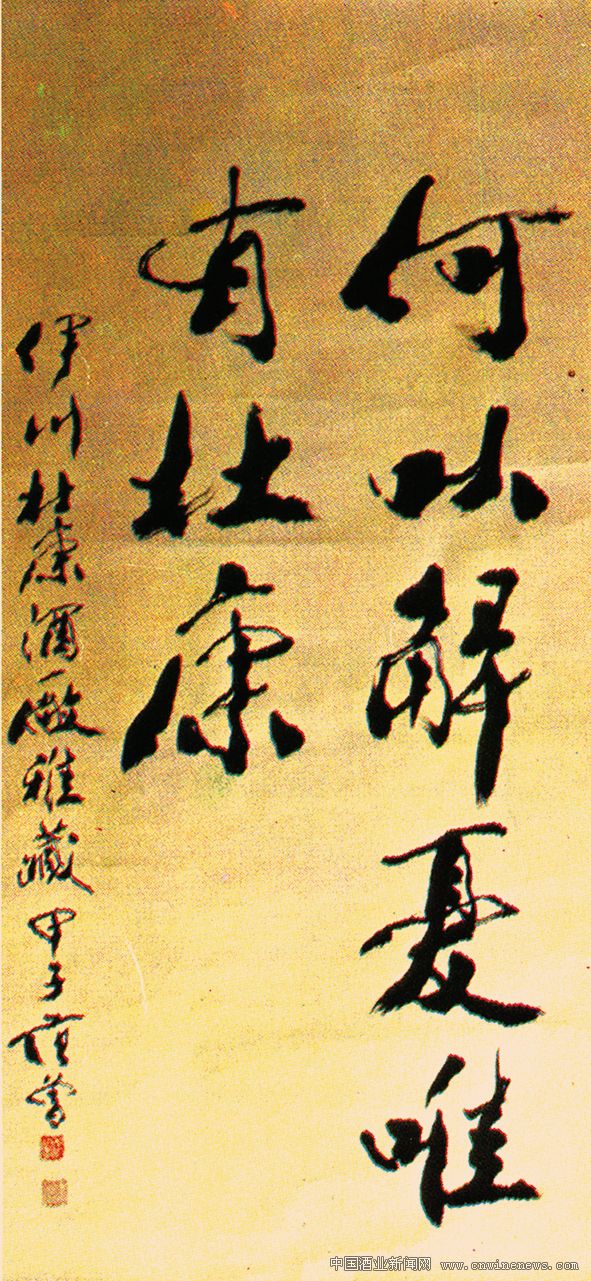 何以解憂唯
有杜康
伊川杜康酒廠雅藏 甲子 范曾
中国酒业新闻网 www.cnwinenews.com